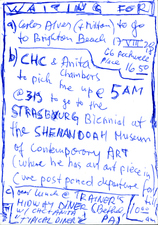 WAITING FOR
a) Carlos Alves (+ Tristan) to go
to Brighton Beach 17 VIII 96
b) CHC & Anita
Chambers
to pick me up @ 5 AM
@ 319 to go to the
STRASBURG Biennial at
the SHENANDOAH Museum
of Contemporary ART
(where he has an art piece in)
(we postponed departure
c) want lunch @ TRAINER'S
MIDWAY DINER (Bethel,
w/ CHC + Anita PA)
TYPICAL DINER